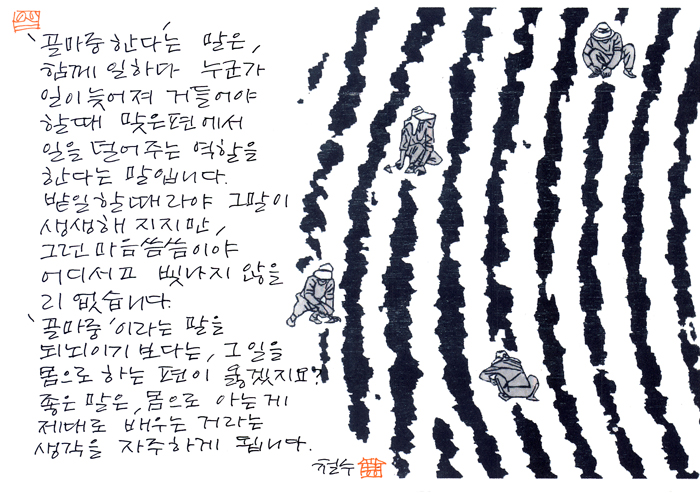 '끌마중한다'는 말은,
함께 일하다 누군가
일이 늦어져 거들어야
할때 맞은편에서
일을 덜어주는 역할을
한다는 말입니다.
밭일할때라야 그말이
생생해 지지만,
그런 마음씀씀이야
어디서고 빛나지 않을
리 없습니다.
'끌마중'이라는 말을
되뇌이기 보다는, 그 일을
몸으로 하는 편이 옳겠지요?
좋은 말은, 몸으로 아는게
제대로 배우는 거라는
생각을 자주하게 됩니다.
철수